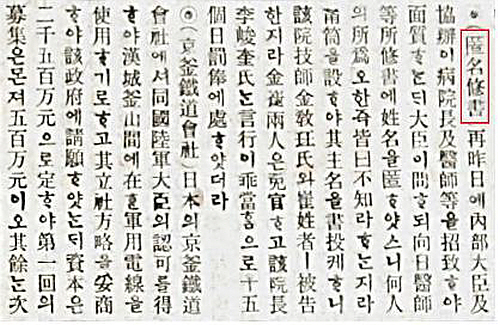 ◉(匿名修書)再昨日에內部大臣及
協辦이病院長及醫師等을招致ᄒᆞ야
面質ᄒᆞᄂᆞᆫᄃᆡ大臣이問ᄒᆞ되向日醫師
等所修書에姓名을匿ᄒᆞ얏스니何人
의所爲오ᄒᆞᆫ즉皆曰不知라ᄒᆞᄂᆞᆫ지라
甬筒을設ᄒᆞ야其主名을書投케ᄒᆞ니
該院技師金敎班氏와崔姓者ㅣ被告
ᄒᆞᆫ지라金崔兩人은免官ᄒᆞ고該院長
李峻奎氏ᄂᆞᆫ言行이乖當홈으로十五
個日罰俸에處ᄒᆞ얏더라
◉(京釜鐵道會社)日本의京釜鐵道
會社에셔同國陸軍大臣의認可를得
ᄒᆞ야漢城釜山間에在ᄒᆞᆫ軍用電線을
使用ᄒᆞ기로ᄒᆞ고其立社方略을妥商
ᄒᆞ야該政府에請願ᄒᆞ얏ᄂᆞᆫᄃᆡ資本은
二千五百万元으로定ᄒᆞ야第一回의
募集은몬져五百万元이오其餘ᄂᆞᆫ次